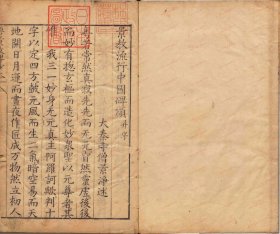 景教流行中國碑頌并序
大秦寺僧景淨述
粤若常然真寂先先而无元窅然靈虛後後
而妙有揔玄樞而造化妙衆聖以元尊者其
唯我三一妙身无元真主阿羅訶歟判十
字以定四方皷元風而生二氣暗空易而天
地開日月運而晝夜作匠成万物然立初人